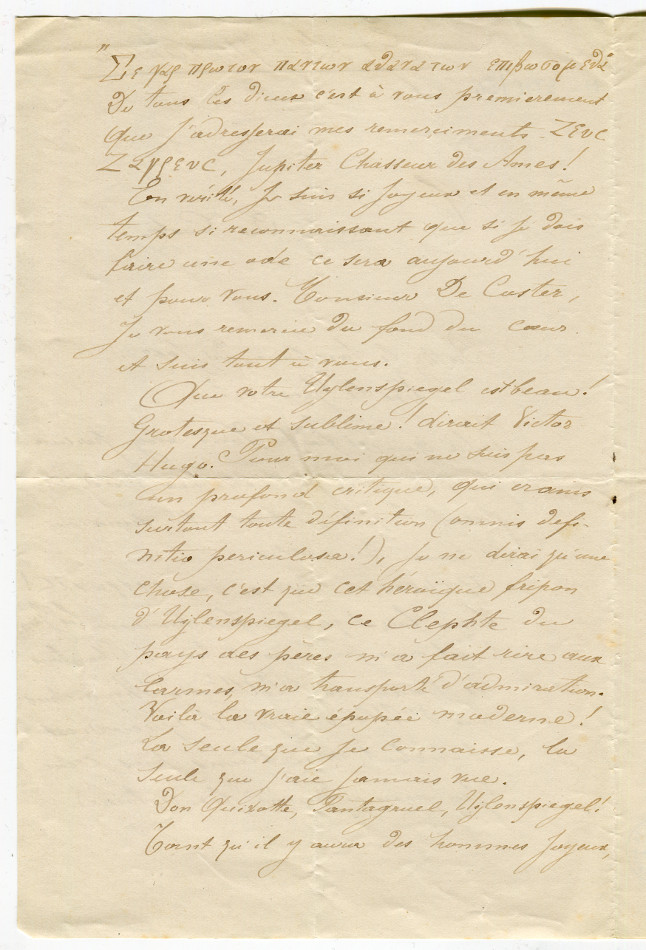 "Σε γαρ πρωτον παντων αθανατων επιβωσομεθα
De tous les dieux c'est à vous premièrement
que j'adresserai mes remerciments. ΖΕΥC
ΖΑΓΡΕΥC, Jupiter Chasseur des Ames!
En vérité, Je suis si joyeux et en même
temps si reconnaissant que si je dois
faire une ode ce sera aujourd'hui
et pour vous. Monsieur De Coster,
Je vous remercie du fond du cœur
et suis tout à vous.
Que votre Uylenspiegel est beau!
Grotesque et sublime! dirait Victor
Hugo. Pour moi qui ne suis pas
un profond critique, qui crains
surtout toute définition (omnis defi-
nitio periculosa!), je ne dirai qu'une
chose, c'est que cet héroïque fripon
d'Uylenspiegel, ce Clephte du
pays des pères m'a fait rire aux
larmes, m'a transporté d'admiration.
Voilà la vraie épopée moderne!
La seule que je connaisse, la
seule que j'aie jamais vue.
Don Quixotte, Pantagruel, Uylenspiegel!
Tant qu'il y aura des hommes joyeux,